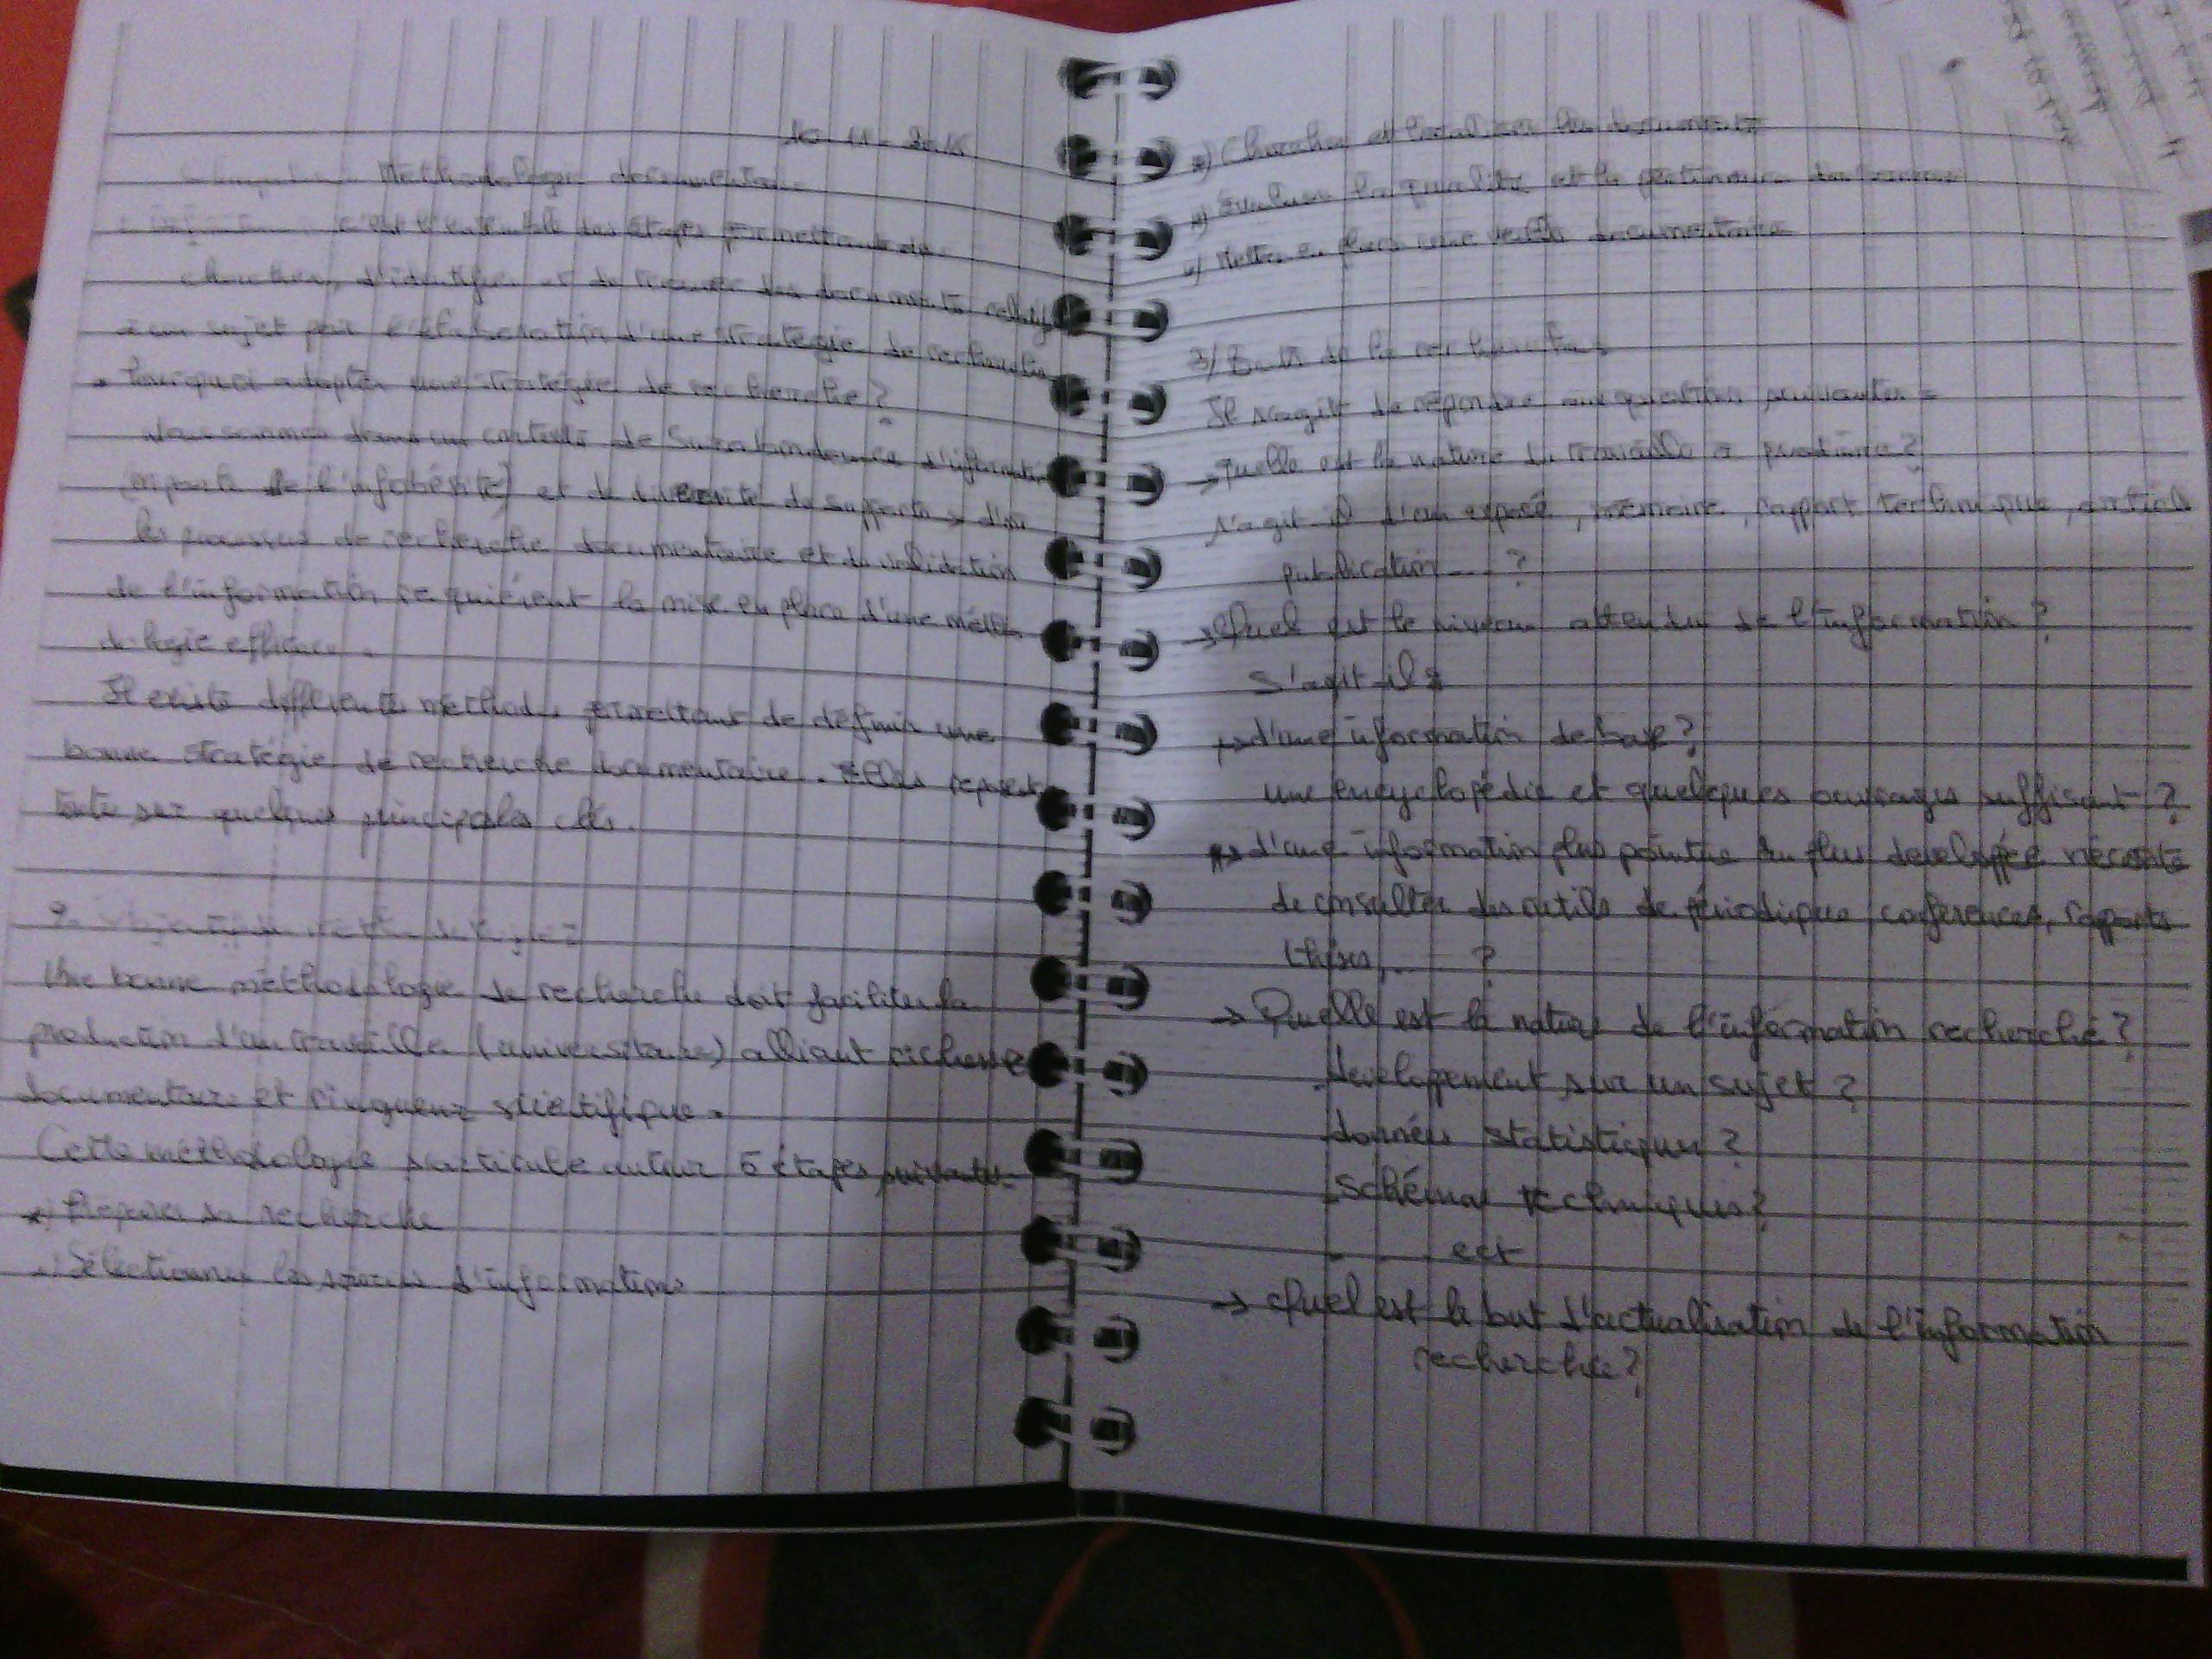 Méthodologie documentaire
c'est l'ensemble des étapes permettant de
chercher, d'identifier et de trouver des documents
à un sujet par l'élaboration d'une stratégie de
Pourquoi adopter une stratégie de recherche ?
Nous sommes dans un contexte de Surabondance d'information
(on parle de l'infobésité) et de diversité de supports → d'où
les processus de recherche documentaire et de validation
de l'information requièrent la mise en place d'une métho
dologie efficace.
Il existe différents méthodes permettant de définir une
bonne stratégie de recherche documentaire. Elles reposent
toute sur quelques principales clés.
Une bonne méthodologie de recherche doit faciliter la
production d'un travaille (universitaire) alliant richesse
documentaire et rigueur scientifique.
Cette méthodologie s'articule autour 5 étapes suivante
Préparer sa recherche
Sélectionner les sources d'informations
Chercher et localiser les documents
Evaluer la qualité et la pertinence des sources
Mettre en place une veille documentaire
3/ But de la recherche
Il s'agit de répondre aux question suivantes =
→ Quelle est la nature du travaille à produire ?
s'agit-il d'un exposé, mémoire, rapport technique, article
publication ... ?
→ Quel est le niveau attendu de l'information ?
S'agit-il :
→ d'une information de base ?
une encyclopédie et quelques ouvrages suffisent ?
→ d'une information plus pointue ou plus developpée nécessite
de consulter des outils de périodique, conférences, rapports
thèses, ... ?
→ Quelle est la nature de l'information recherché ?
developpement sur un sujet ?
données statistiques ?
schémas techniques ?
ect
→ Quel est le but d'actualisation de l'information
recherchée ?